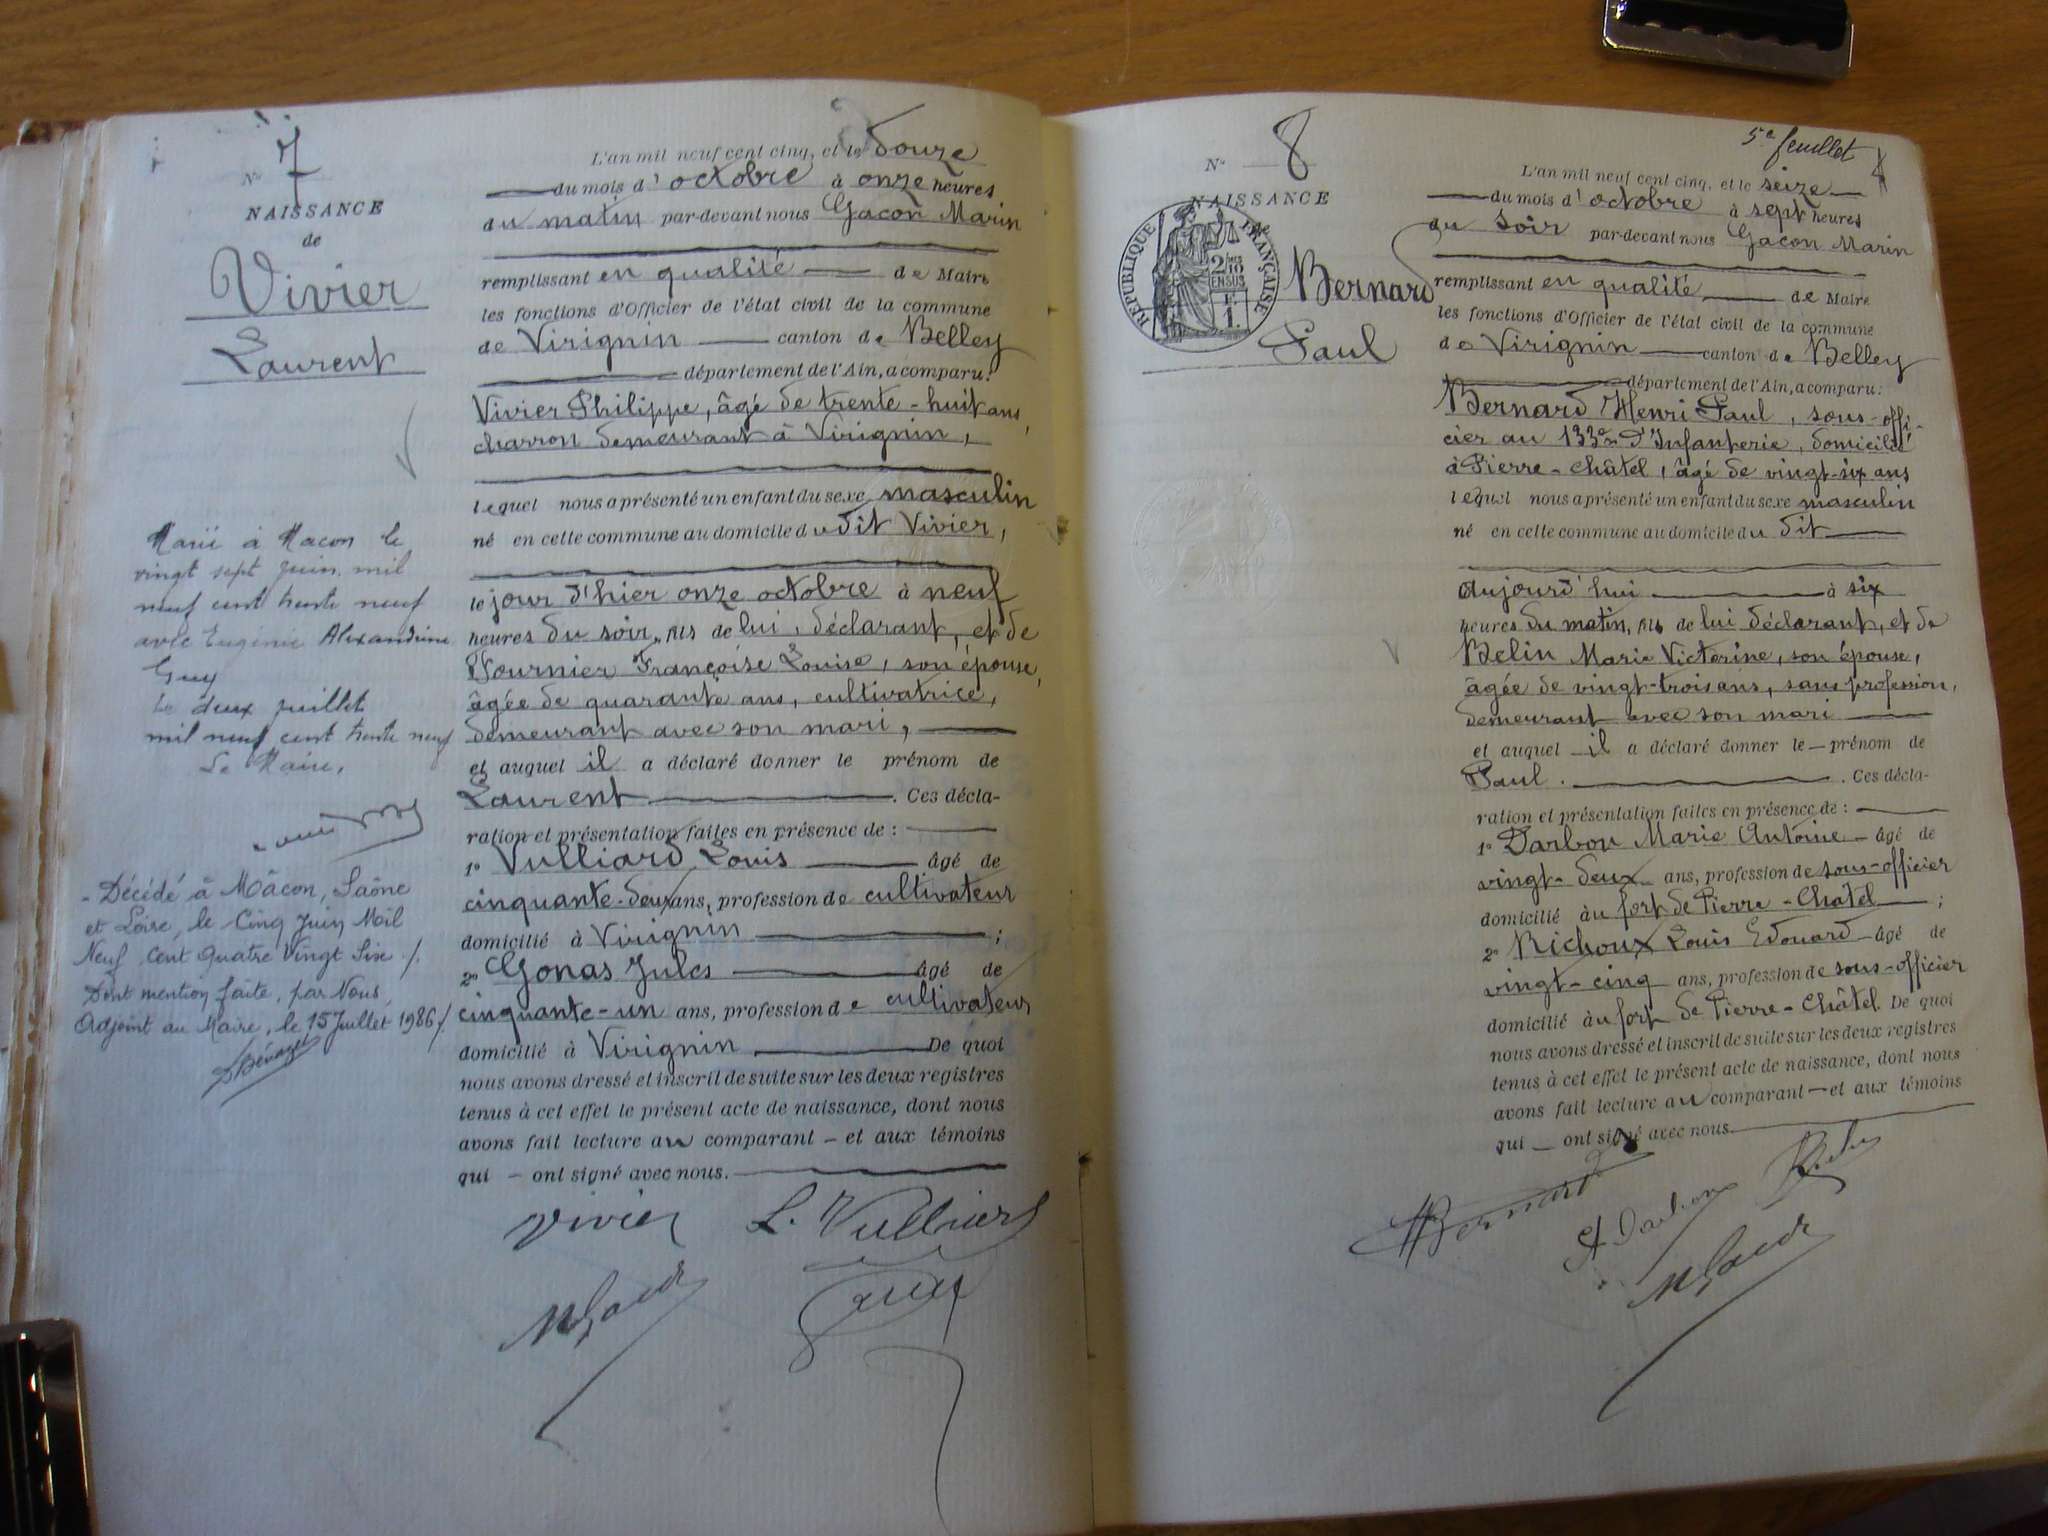 N° 7
NAISSANCE
de
Vivier
Laurent
Marié à Macon le
vingt sept juin mil
neuf cent trente neuf
avec Eugénie Alexandrine
Guy
Le deux juillet
mil neuf cent trente neuf
Le Maire,
- Décédé à Mâcon, Saône
et Loire, le Cinq Juin Mil
Neuf Cent Quatre Vingt Six /.
Dont mention faite, par Nous,
Adjoint au Maire, le 15 Juillet 1986 /
L'an mil neuf cent cinq, et le douze
du mois d'octobre à onze heures
du matin par-devant nous Gacon Marin
remplissant en qualité de Maire
les fonctions d'Officier de l'état civil de la commune
de Virignin canton de Belley
département de l'Ain, a comparu:
Vivier Philippe, âgé de trente-huit ans,
charron demeurant à Virignin,
lequel nous a présenté un enfant du sexe masculin
né en cette commune au domicile du dit Vivier,
le jour d'hier onze octobre à neuf
heures du soir, fils de lui, déclarant, et de
Fournier Françoise Louise, son épouse,
âgée de quarante ans, cultivatrice,
demeurant avec son mari,
et auquel il a déclaré donner le prénom de
Laurent. Ces décla-
ration et présentation faites en présence de :
1° Vulliard Louis âgé de
cinquante-deux ans, profession de cultivateur
domicilié à Virignin ;
2° Gonas Jules âgé de
cinquante-un ans, profession de cultivateur
domicilié à Virignin De quoi
nous avons dressé et inscrit de suite sur les deux registres
tenus à cet effet le présent acte de naissance, dont nous
avons fait lecture au comparant – et aux témoins
qui – ont signé avec nous.
Vivier L. Vulliard
MGacon
5e feuillet
N° 8
NAISSANCE
de
RÉPUBLIQUE FRANÇAISE
2/10 EN SUS
F.
1.
Bernard
Paul
L'an mil neuf cent cinq, et le seize
du mois d'octobre à sept heures
du soir par-devant nous Gacon Marin
remplissant en qualité de Maire
les fonctions d'Officier de l'état civil de la commune
de Virignin canton de Belley
département de l'Ain, a comparu:
Bernard Henri Paul, sous-offi-
cier au 133e d'Infanterie, domicilié
à Pierre-Châtel, âgé de vingt-six ans
lequel nous a présenté un enfant du sexe masculin
né en cette commune au domicile du dit
aujourd'hui à six
heures du matin, fils de lui déclarant, et de
Belin Marie Victorine, son épouse,
âgée de vingt-trois ans, sans profession,
demeurant avec son mari
et auquel il a déclaré donner le – prénom de
Paul. . Ces décla-
ration et présentation faites en présence de :
1° Darbon Marie Antoine - âgé de
vingt-deux ans, profession de sous-officier
domicilié au fort de Pierre-Châtel ;
2° Richoux Louis Edouard - âgé de
vingt-cinq ans, profession de sous-officier
domicilié au fort de Pierre-Châtel. De quoi
nous avons dressé et inscrit de suite sur les deux registres
tenus à cet effet le présent acte de naissance, dont nous
avons fait lecture au comparant – et aux témoins
qui – ont signé avec nous.
HBernard
A Darbon
MGacon